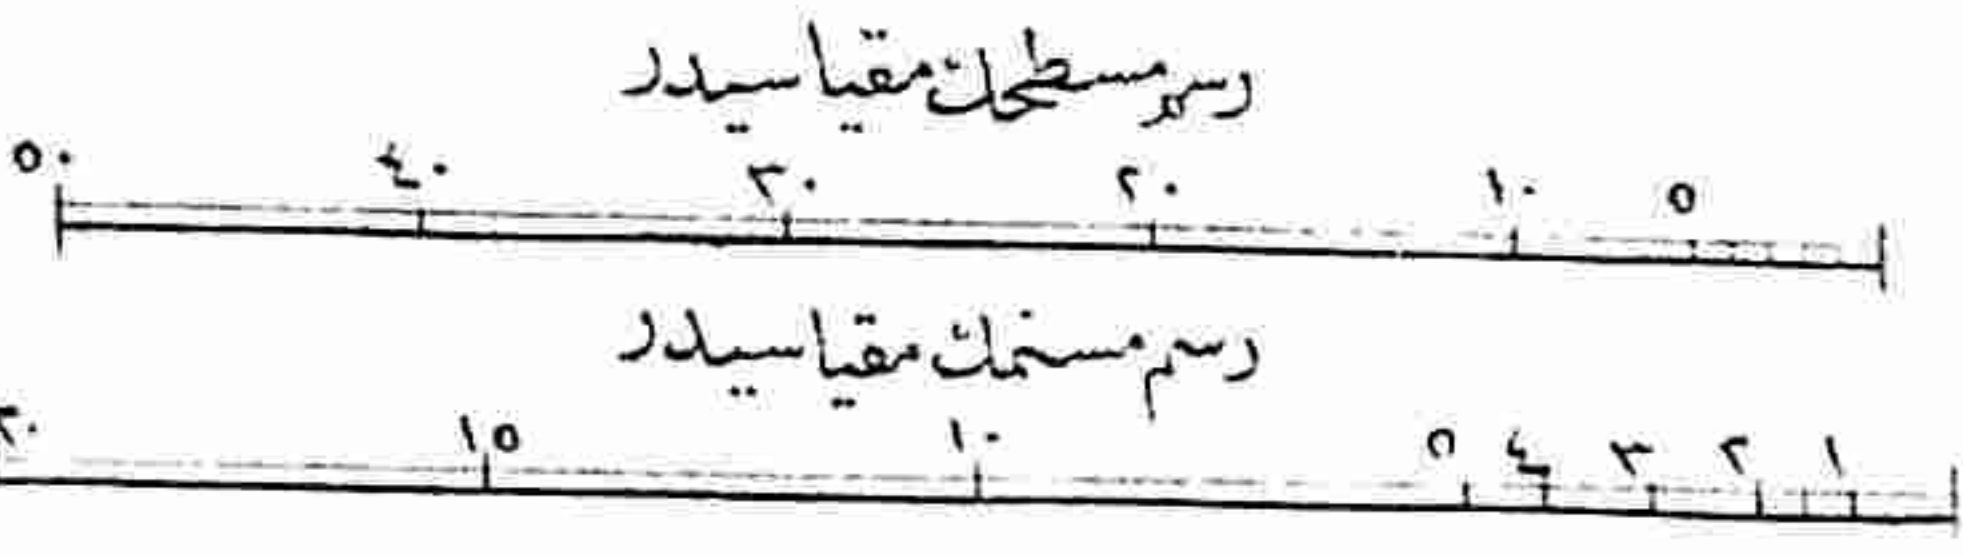 رسم مسطحك مقیاسیدر
٥٠ ٤٠ ٣٠ ٢٠ ١٠ ٥
رسم مسنمك مقیاسیدر
٢٠ ١٥ ١٠ ٥ ٤ ٣ ٢ ١